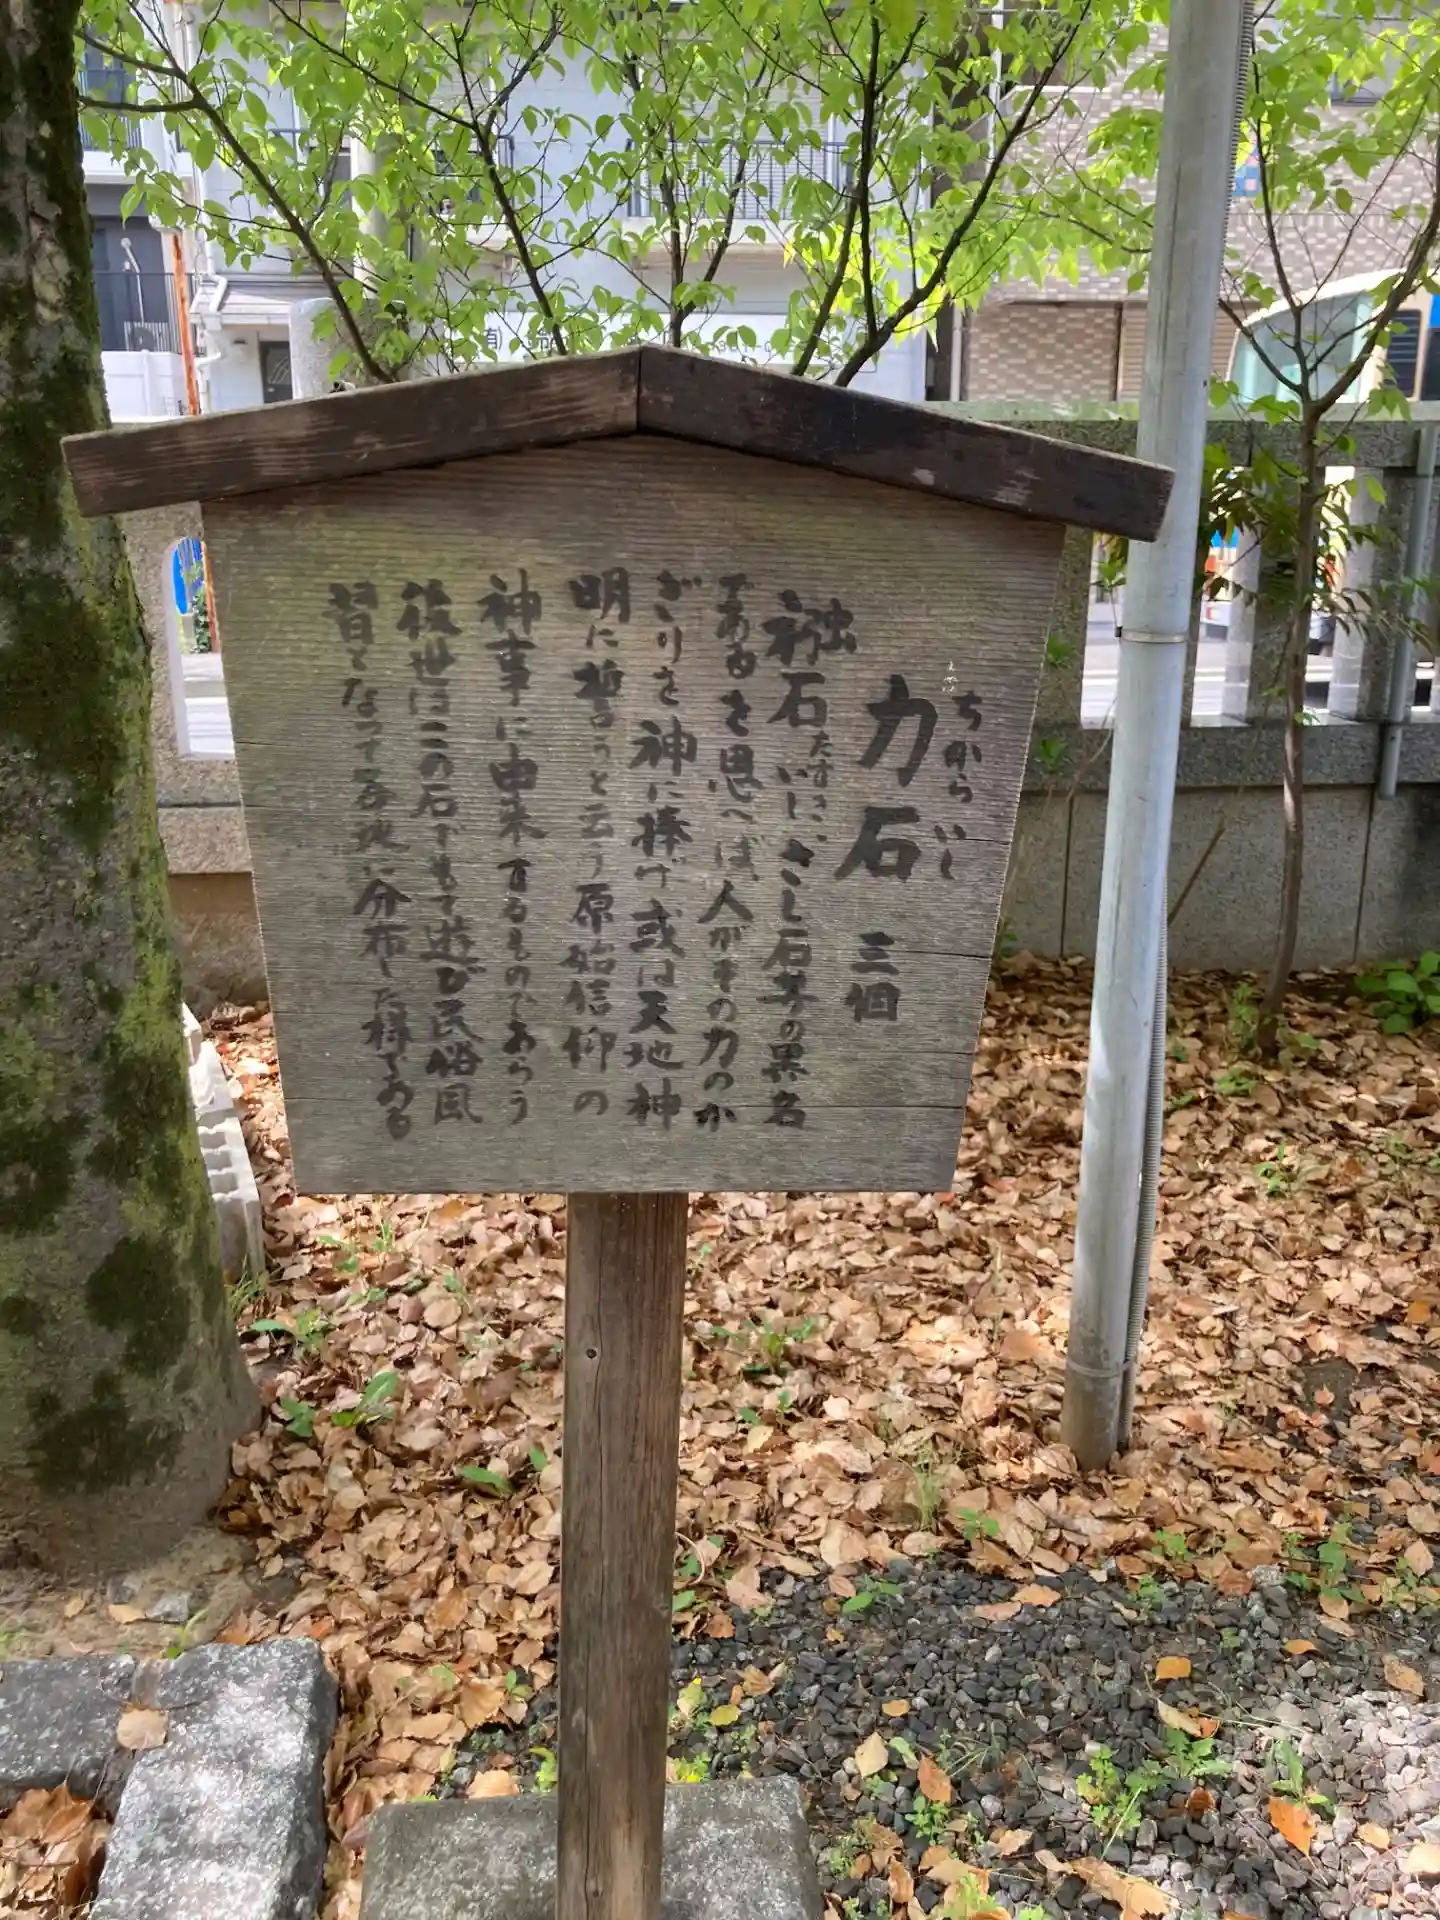 ちからいし
力石 三個
石 さし石等の異名
であるを思へば、人がその力のか
ぎりを神に捧げ或は天地神
明に誓うと云う原始信仰の
神事に由来するものであらう
後世はこの石でもて遊び民俗風
習となって各地に分布した様である